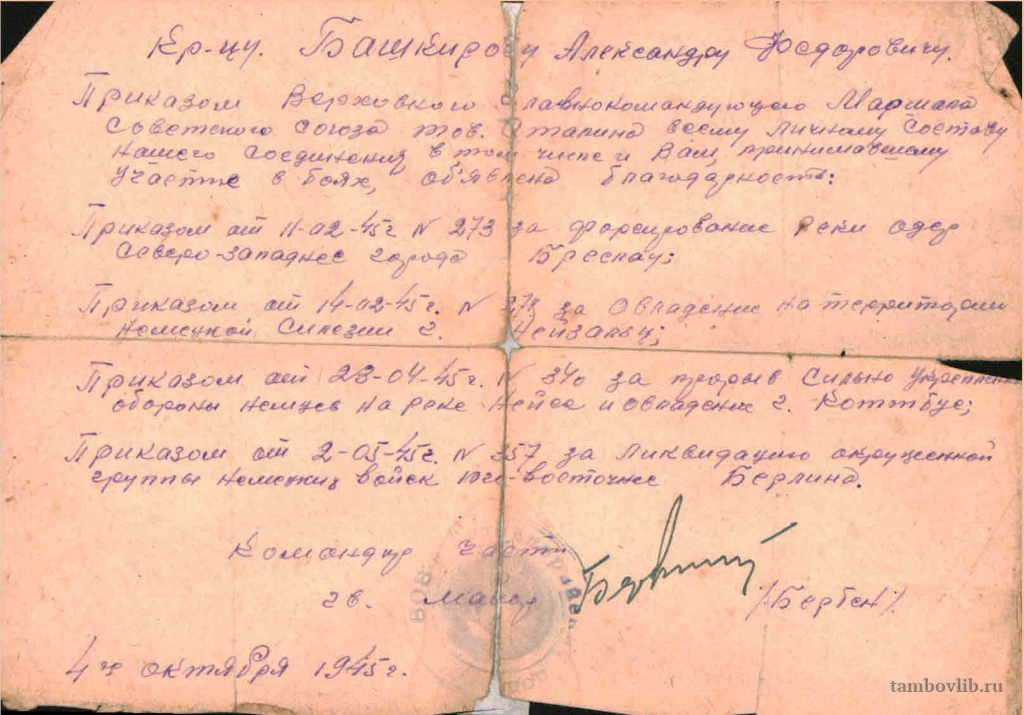 Кр-цу. Башкирову Александру Федоровичу.
Приказом Верховного Главнокомандующего Маршала
Советского Союза тов. Сталина всему личному составу
нашего соединения, в том числе и Вам, принимавшему
участие в боях, об'явлена благодарность:
Приказом от 11-02-45г. N 273 за форсирование реки Одер
северо-западнее города Бреслау;
Приказом от 14-02-45г. N 278 за овладение на территории
Немецкой Силезии г. Нейзальц;
Приказом от 23-04-45г. N 340 за прорыв сильно укреплен
обороны немцев на реке Нейсе и овладение г. Коттбус;
Приказом от 2-05-45г. N 357 за ликвидацию окруженной
группы немецких войск юго-восточнее Берлина.
Командир части
гв. Майор /Бертен/.
4го октября 1945г.
tambovlib.ru